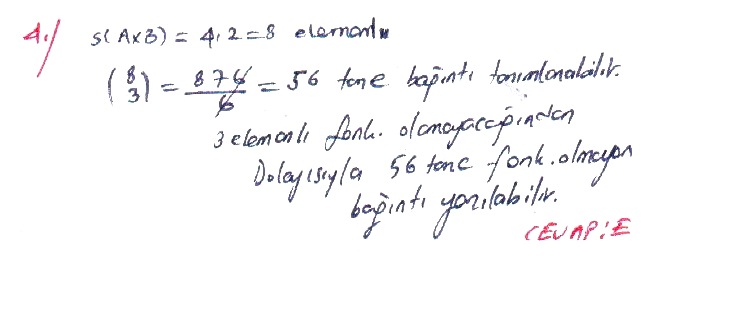 4.) s(AxB) = 4.2 = 8 elemanlı
(8 3) = 8 7 6 / 6 = 56 tane bağıntı tanımlanabilir.
3 elemanlı fonk. olamayacağından
Dolayısıyla 56 tane fonk. olmayan
bağıntı yazılabilir.
CEVAP: E